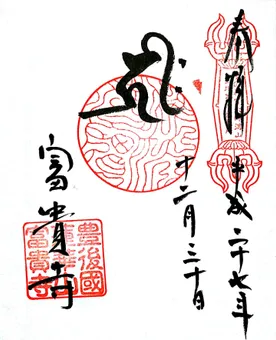 奉拝
平成二十七年
十二月三十日
𑖮𑖿𑖨𑖱𑖾
富貴寺
豊後國
蓮華山
富貴寺